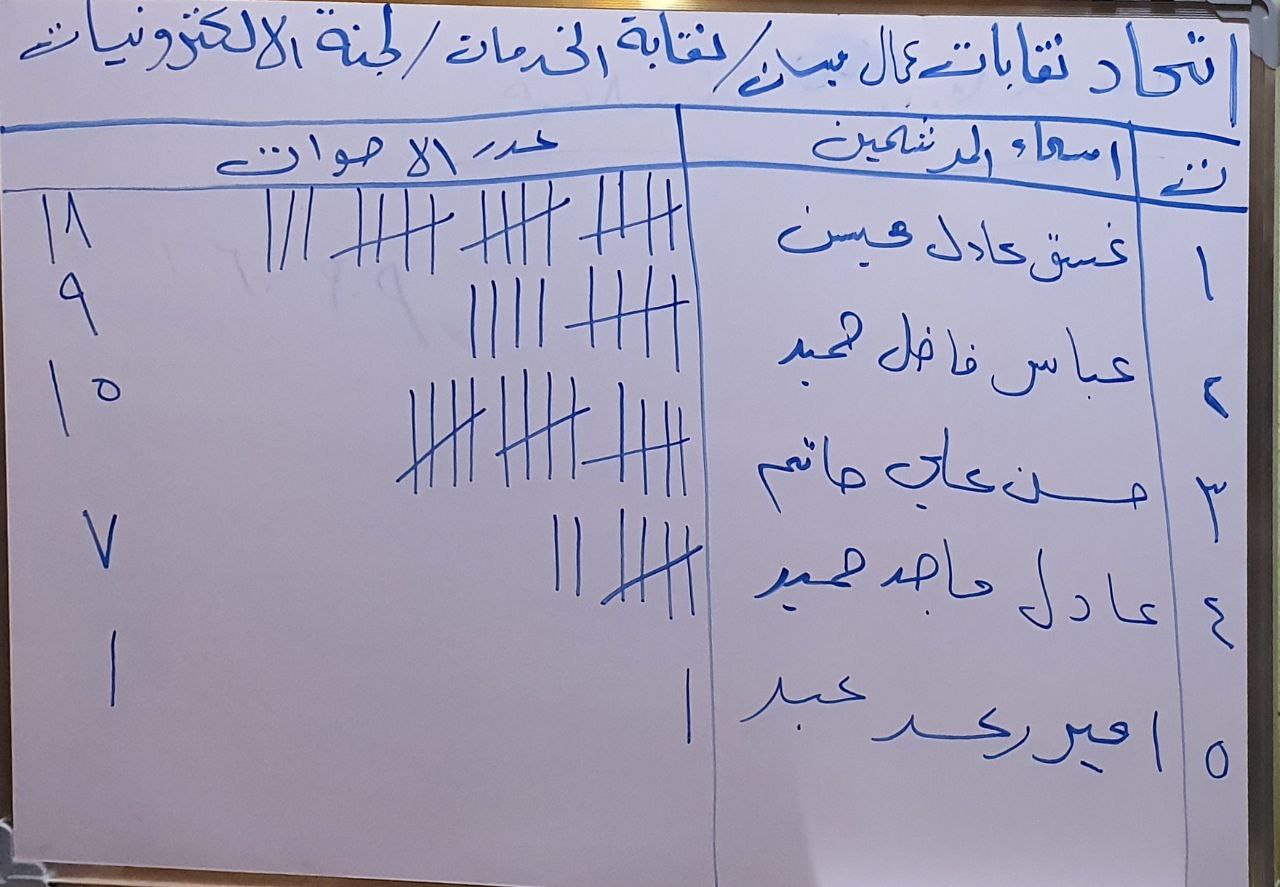 اتحاد نقابات عمال ميسان / نقابة الخدمات / لجنة الالكترونيات
ت اسماء المرشحين عدد الاصوات
١ غسق عادل محيسن ١٨
٢ عباس فاضل حميد ٩
٣ حسن علي حاتم ١٥
٤ عادل ماجد حميد ٧
٥ امير رعد عبد ١